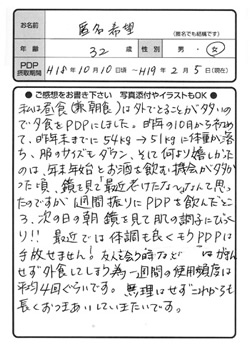 お名前 匿名希望
(匿名でも結構です)
年齢 32歳 性別 男・女
PDP摂取期間 H18年10月10日頃~H19年2月5日(現在)
●ご感想をお書き下さい 写真添付やイラストもOK●
私は昼食(兼朝食)は外でとることが多いの
で夕食をPDPにしました。昨年の10月から初め
て、昨年末までに54kg→51kgに体重が落
ち、服のサイズもダウン、そして何より嬉しかった
のは、年末年始とお酒を飲む機会が多か
った頃、鏡を見て「最近老けたな〜」なんて思っ
たのですが1週間振りにPDPを飲んだとこ
ろ、次の日の朝 鏡を見て肌の調子にびっく
り!! 最近では体調も良くもうPDPは
手放せません! 友人と会う時など は がまん
せず外食してしまう為一週間の使用頻度は
平均4回ぐらいです。無理はせずこれからも
長くおつきあいしていきたいです。